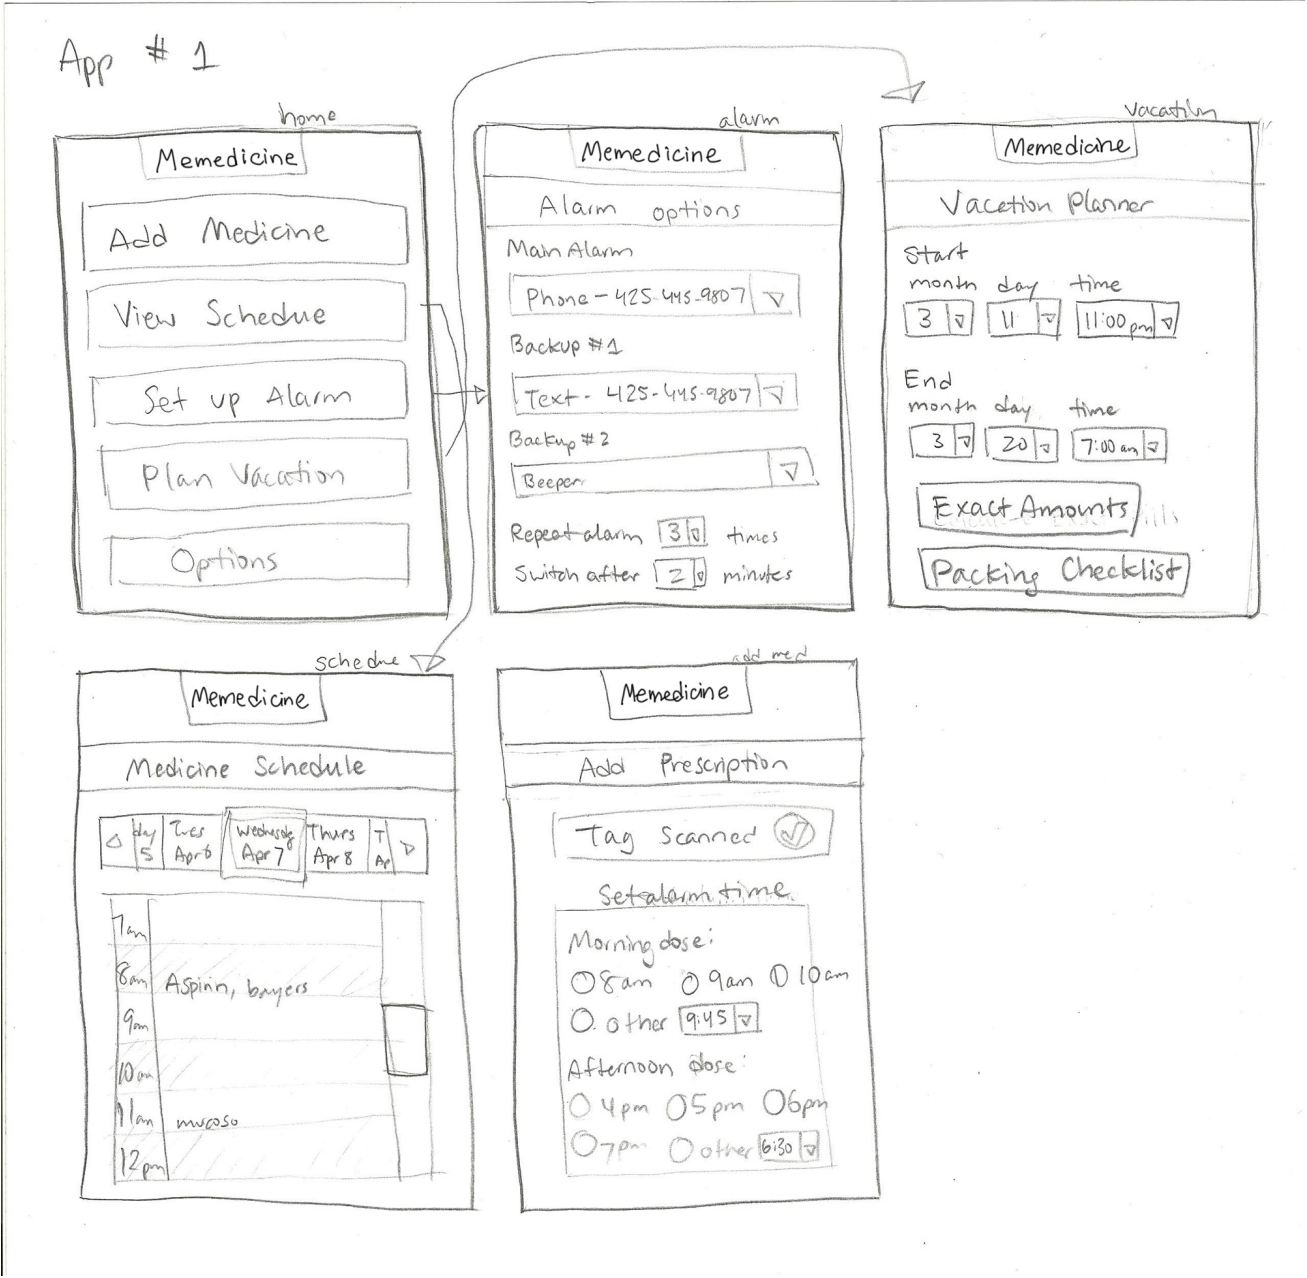 App # 1
home
Memedicine
Add Medicine
View Schedue
Set up Alarm
Plan Vacation
Options
alarm
Memedicine
Alarm options
Main Alarm
Phone - 425-445-9807
Backup #1
Text - 425-445-9807
Backup #2
Beeper
Repeat alarm 3 times
Switch after 2 minutes
vacation
Memedicine
Vacation Planner
Start
month day time
3 11 11:00 pm
End
month day time
3 20 7:00 am
Exact Amounts
Packing Checklist
schedue
Memedicine
Medicine Schedule
day Tues Wednesday Thurs T
5 Apr 6 Apr 7 Apr 8 Ap
7am
8am Aspirin, bayers
9am
10am
11am mucoso
12pm
add med
Memedicine
Add Prescription
Tag Scanned
Set alarm time
Morning dose:
8am 9am 10am
other 9:45
Afternoon dose:
4pm 5pm 6pm
7pm other 6:30